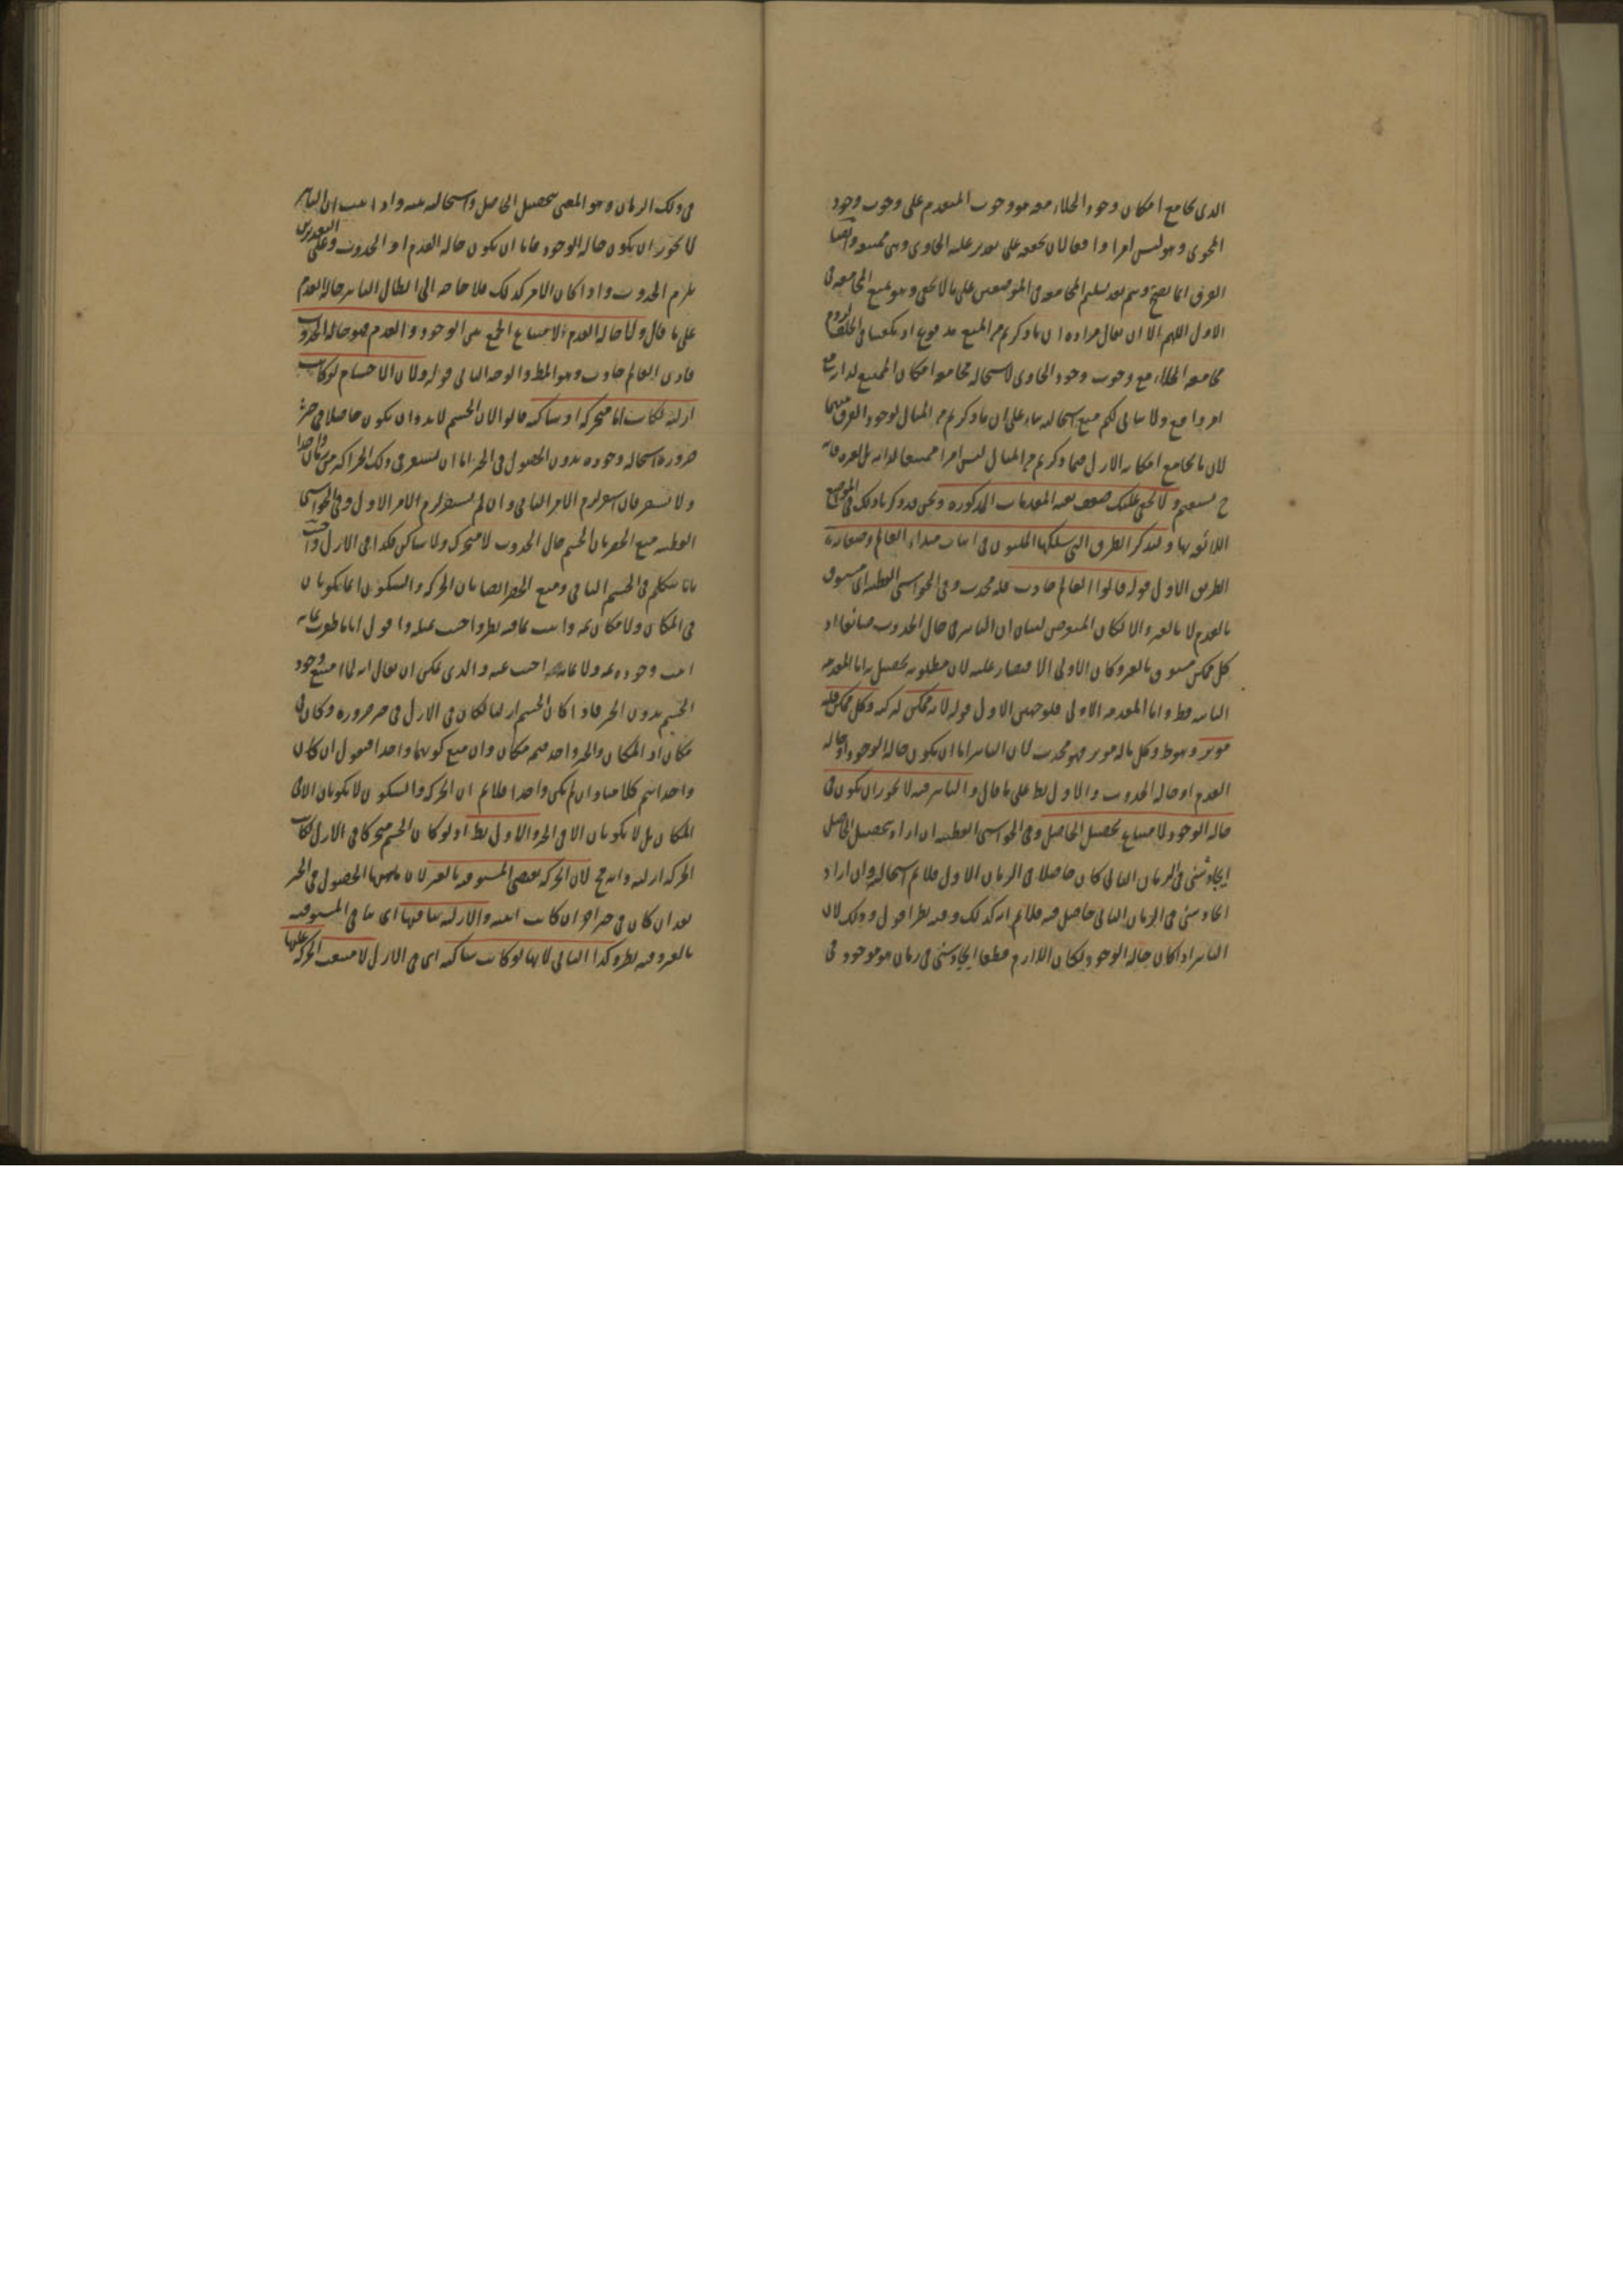 الذى يجامع امكان وجود الخلاء معه هو وجوب المتقدم على وجوب وجود
المحوى وهو ليس امرا واقعا لان تحققه على تقدير علية الحاوى وهى ممتنعة وايضا
الفرق انما يصح ويتم بعد تسليم المجامعة فى الموضعين على ما لا يخفى وهو يمنع المجامعة فى
الاول اللهم الا ان يقال مراده ان ما ذكرتم من المنع مدفوع اذ يكفينا فى الخلف لزوم
مجامعة الخلاء مع وجوب وجود الحاوى لاستحالة مجامعة امكان الممتنع لذاته مع
امر واقع ولا يتأتى لكم منع استحالته بناء على ان ما ذكرتم من المثال لوجود الفرق بينهما
لان ما يجامع امكانه الازل فيما ذكرتم من المثال ليس امرا ممتنعا لذاته بل لغيره فانه
ح يستقيم ولا يخفى عليك ضعف هذه المقدمات المذكورة ونحن قد ذكرنا ذلك فى المواضع
اللائقة بها ولنذكر الطرق التى سلكها المليون فى اثبات مبداء العالم وصفاته
الطريق الاول قوله قالوا العالم حادث فله محدث وفى الحواشى القطبية اى مسبوق
بالعدم لا بالغير والا لكان التعرض لبيان ان التأثير فى حال الحدوث ضائعا اذ
كل ممكن مسبوق بالغير وكان الاولى الاقتصار عليه لان مطلوبه يحصل به اما المقدمة
الثانية فظ واما المقدمة الاولى فلوجهين الاول قوله لانه ممكن لتركبه وكل ممكن فله
موثر وهو ظ وكل ما له موثر فهو محدث لان التأثير اما ان يكون حالة الوجود او حالة
العدم او حالة الحدوث والاول بط على ما قال والتأثير فيه لا يجوز ان يكون فى
حالة الوجود لامتناع تحصيل الحاصل وفى الحواشى القطبية ان اراد بتحصيل الحاصل
ايجاد شئ فى الزمان الثانى كان حاصلا فى الزمان الاول فلا نم استحالته وان اراد
ايجاد شئ فى الزمان الثانى حاصل فيه فلا نم انه كذلك وفيه نظر اقول وذلك لان
التأثير اذا كان حالة الوجود لكان اللازم قطعا ايجاد شئ فى زمان هو موجود فى
فى ذلك الزمان وهو المعنى بتحصيل الحاصل واستحالته بينة واذا ثبت ان التأثير
لا يجوز ان يكون حالة الوجود فاما ان يكون حالة العدم او الحدوث وعلى التقديرين
يلزم الحدوث واذا كان الامر كذلك فلا حاجة الى ابطال التأثير حالة العدم
على ما قال ولا حالة العدم لامتناع الجمع بين الوجود والعدم فهو حالة الحدوث
فاذن العالم حادث وهو المط والوجه الثانى قوله ولان الاجسام لو كانت
ازلية لكانت اما متحركة او ساكنة قالوا لان الجسم لا بد وان يكون حاصلا فى حيز
ضرورة استحالة وجوده بدون الحصول فى الحيز اما ان يستقر فى ذلك الحيز اكثر من زمان واحد
ولا يستقر فان استقر لزم الامر الثانى وان لم يستقر لزم الامر الاول وفى الحواشى
القطبية منع الحصر بان الجسم حال الحدوث لا متحرك ولا ساكن فكذا فى الازل واجيب
بانا نتكلم فى الجسم الباقى ومنع الحصر ايضا بان الحركة والسكون انما يكونان
فى المكان ولا مكان ثمه واجيب عما فيه نظر واجيب عنه واقول
اجيب وجوده ثمه ولا اجيب عنه والذى يمكن ان يقال انه لما امتنع وجود
الجسم بدون الحيز فلو كان الجسم ازليا لكان فى الازل فى حيز ضرورة وكان فى
مكان اذ المكان والحيز واحد فيه مكان وان منع كونهما واحدا فنقول ان كان
واحدا تم كلامنا وان لم يكن واحدا فلا نم ان الحركة والسكون لا يكونان الا فى
المكان بل لا يكونان الا فى الحيز والاول بط اذ لو كان الجسم متحركا فى الازل لكانت
الحركة ازلية وانه مح لان الحركة تقتضى المسبوقية بالغير لان ماهيتها الحصول فى الحيز
بعد ان كان فى حيز اخر ان كانت اينية والازلية تنافيها اى تنافى المسبوقية
بالغير وفيه نظر وكذا الثانى لانها لو كانت ساكنة اى فى الازل لامتنعت الحركة عليها